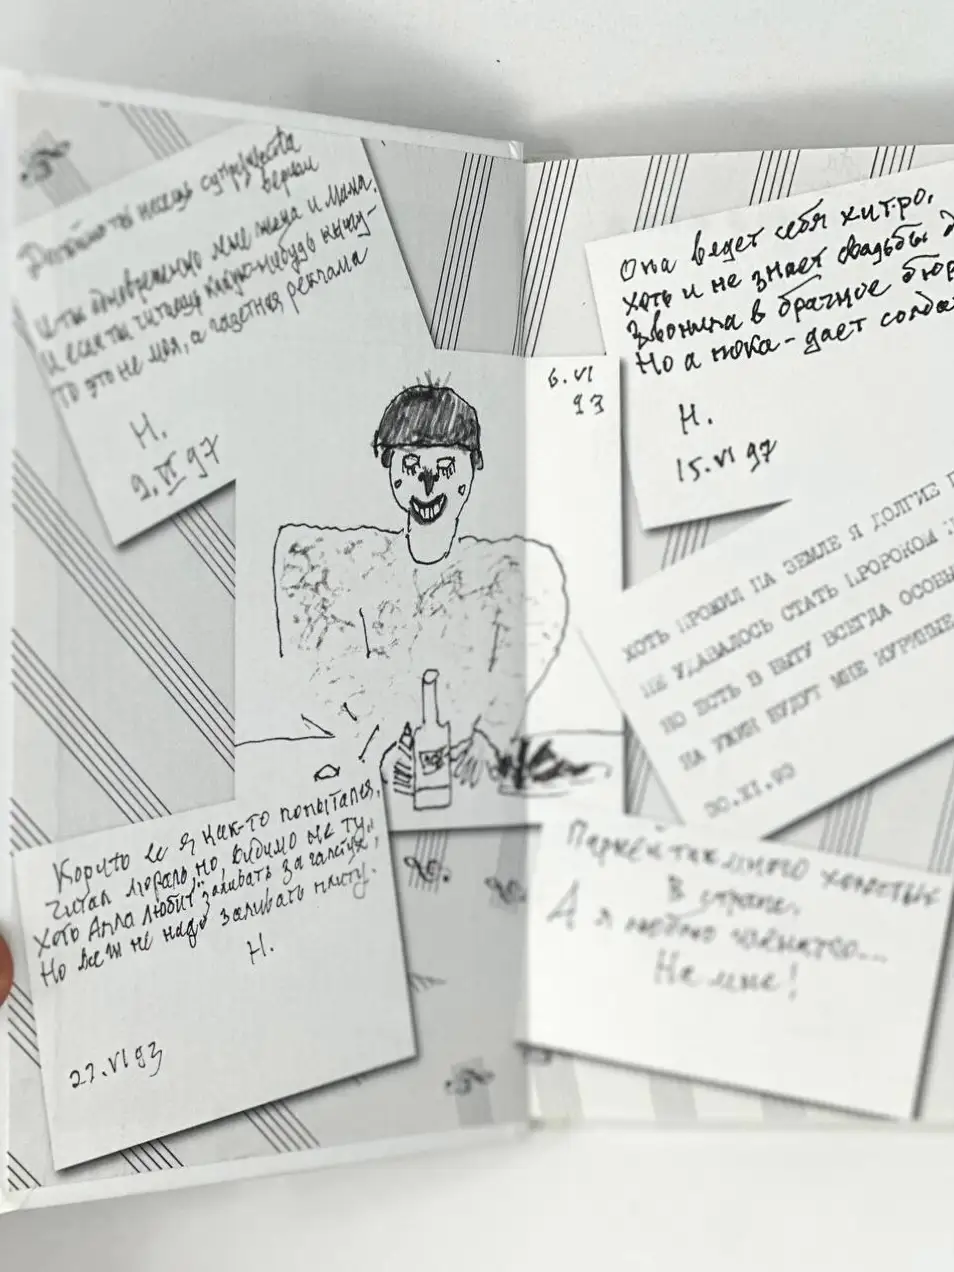 супружества
верши
И ты одновременно мне жена и мама.
И если ты читаешь какую-нибудь книгу-
То это не моя, а газетная реклама
Н.
2.VI 97
6.VI
93
Она ведет себя хитро,
Хоть и не знает свадьбы
Звонила в брачное
Но а пока - дает
Н.
15.VI 97
ХОТЬ ПРОЖИЛ НА ЗЕМЛЕ Я ДОЛГИЕ
НЕ УДАВАЛОСЬ СТАТЬ ПРОРОКОМ
НО ЕСТЬ В БЫТУ ВСЕГДА
НА УЖИН БУДУТ МНЕ КУРИНЫЕ
30.XI.93
Корито ее я как-то попытался,
Читал мораль, но, видимо не ту,
Хоть Алла любит "заливать за галстук",
Но всем не надо заливать плиту.
Н.
27.VI 93
Парней так много холостых
В стране,
А я люблю женатого...
Не мне!